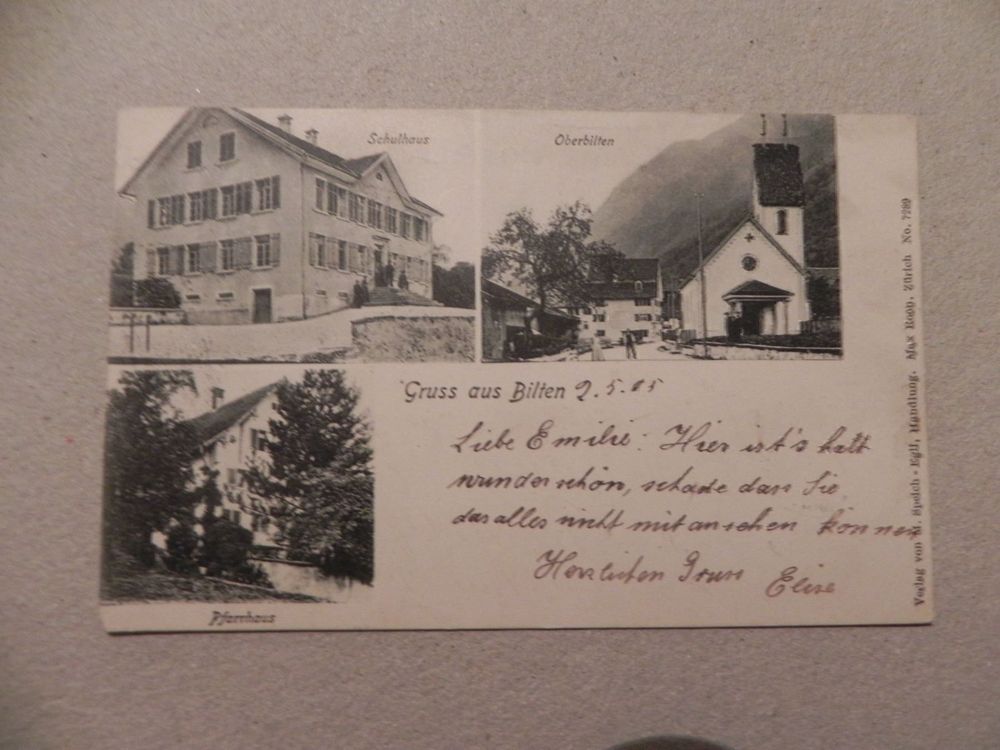 Schulhaus
Oberbilten
Gruss aus Bilten 2.5.05
Liebe Emilie: Hier ist's halt
wunderschön, schade dass Sie
das alles nicht mit ansehen können
Herzlichen Gruss Elise
Pfarrhaus
Verlag von M. Speich-Egli, Handlung. Max Roth, Zürich No. 7289